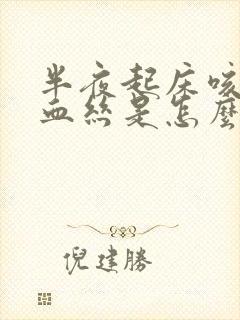 半夜起床咳
血絲是怎麼
倪建勝